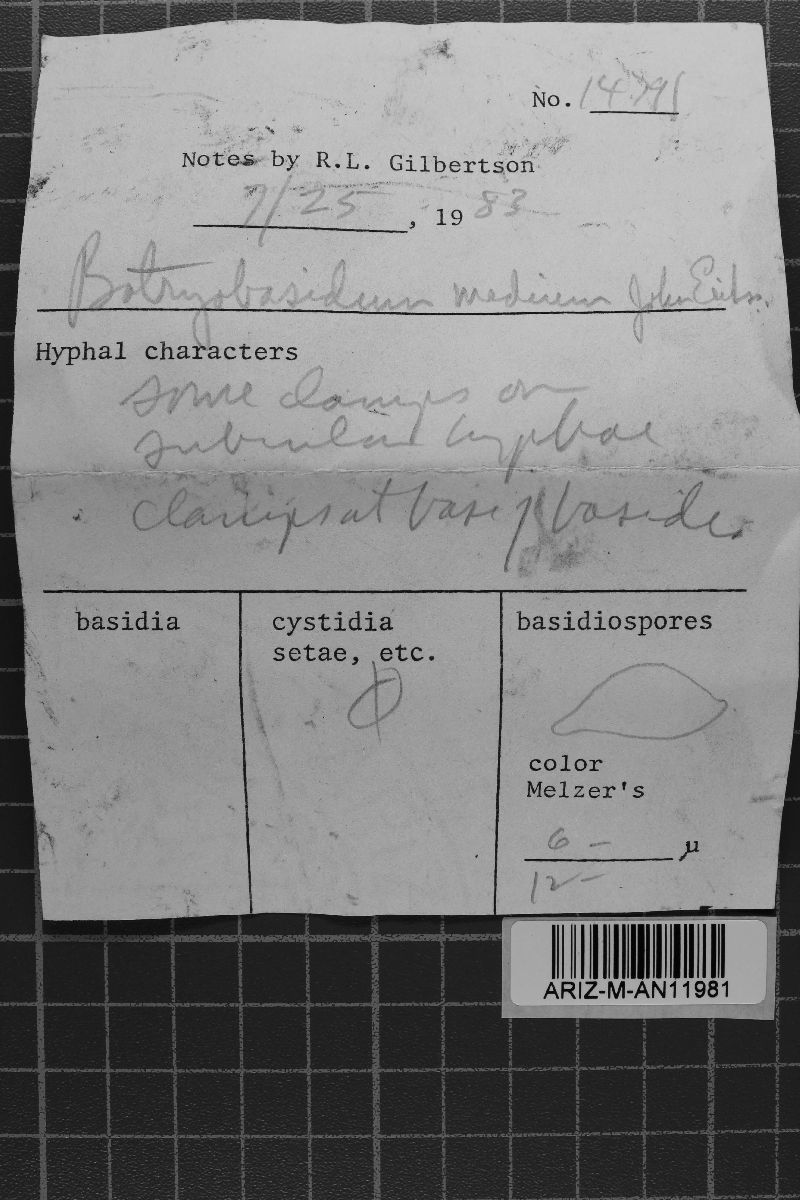 No. 14791
Notes by R.L. Gilbertson
7/25, 1983
Botryobasidium medium John Erikss.
Hyphal characters
some clamps on
subicular hyphae
clamps at base of basidia
basidia
cystidia
setae, etc.
basidiospores
color
Melzer's
6 - µ
12 -
ARIZ-M-AN11981